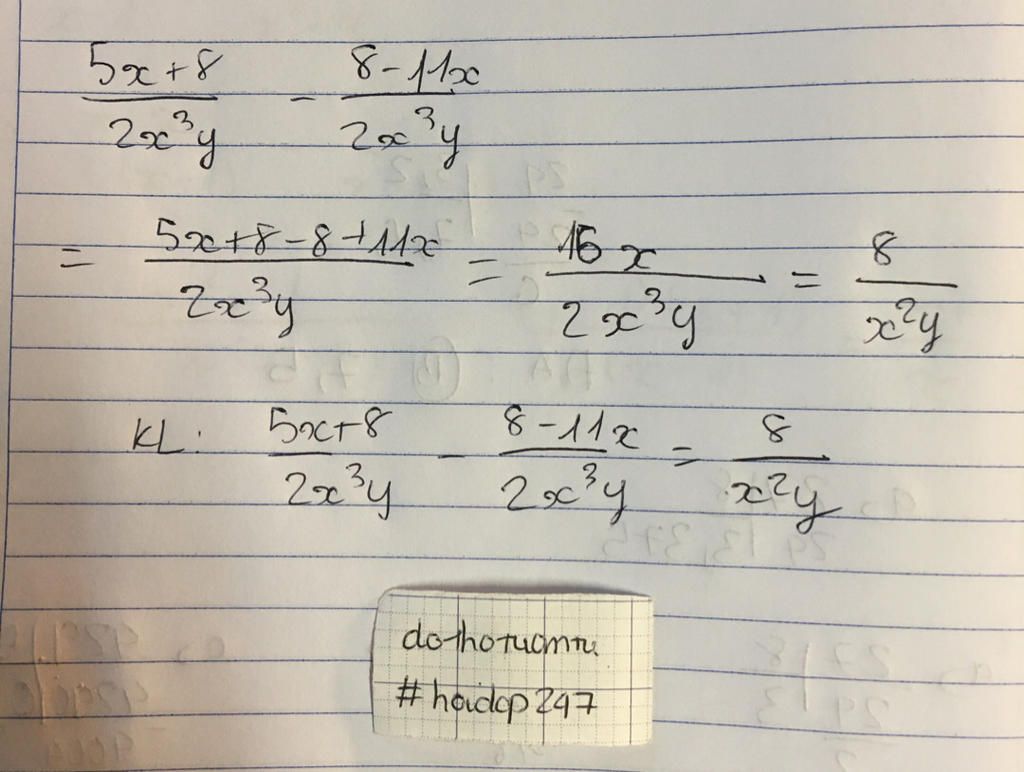 5x+8/2x³y - 8-11x/2x³y
= 5x+8-8+11x/2x³y = 16x/2x³y = 8/x²y
KL: 5x+8/2x³y - 8-11x/2x³y = 8/x²y
#hoidap247